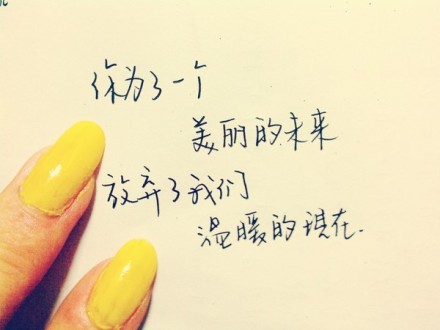 你为了一个
美丽的未来
放弃了我们
温暖的現在.